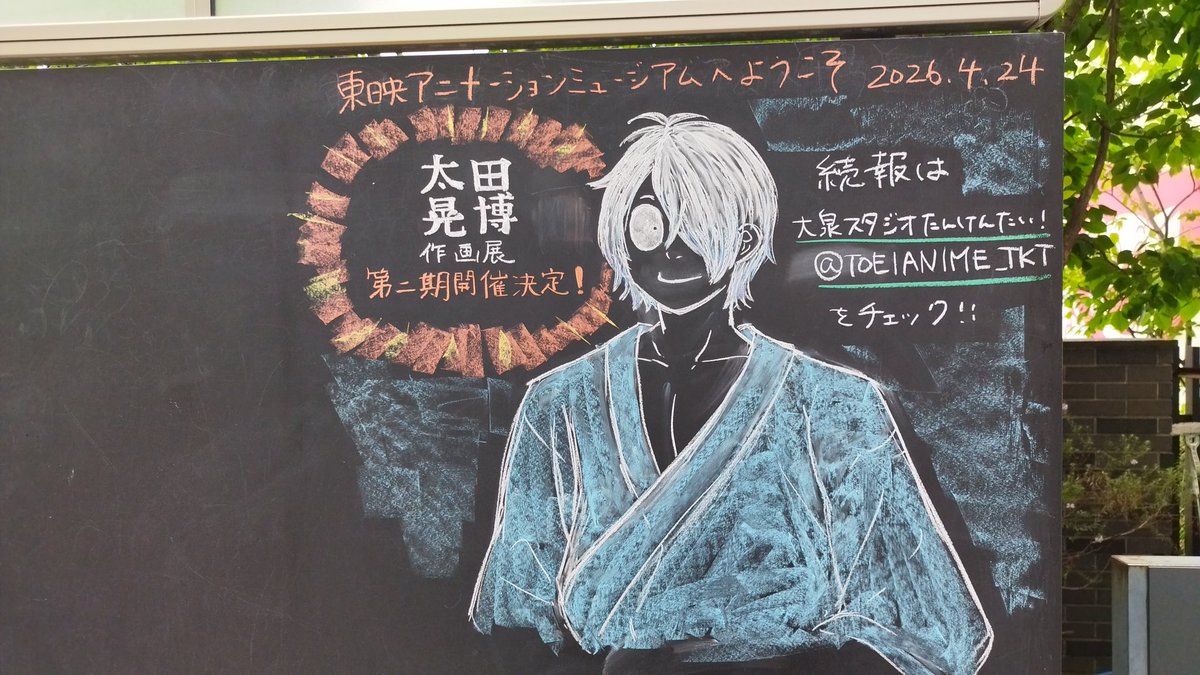 東映アニメーションミュージアムへようこそ 2026.4.24
太田
晃博
作画展
第二期開催決定!
続報は
大泉スタジオたんけんたい!
@TOEIANIME_TKT
をチェック!!